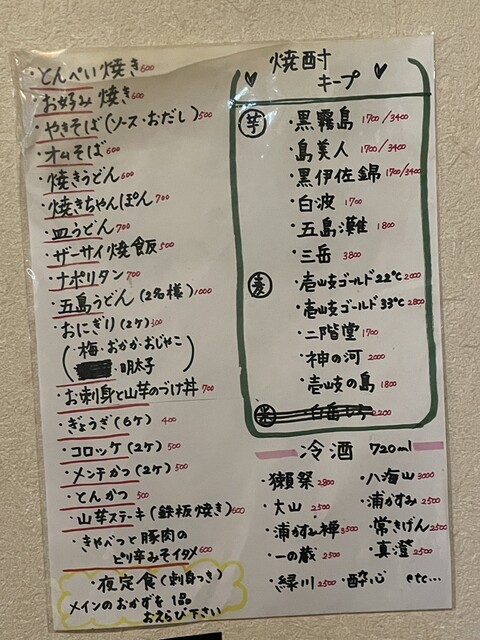 ・とんぺい焼き600
・お好み焼き600
・やきそば(ソース・おだし)500
・オムそば600
・焼きうどん600
・焼きちゃんぽん700
・皿うどん700
・ザーサイ焼飯500
・ナポリタン700
・五島うどん(2名様)1000
・おにぎり(2ケ)300
(・梅・おかか・おじゃこ
・明太子)
・お刺身と山芋のづけ丼700
・ぎょうざ(6ケ)400
・コロッケ(2ケ)500
・メンチかつ(2ケ)500
・とんかつ500
・山芋ステーキ(鉄板焼き)600
・きゃべつと豚肉の
ピリ辛みそイタメ600
・夜定食(刺身つき)
メインのおかずを1品
おえらび下さい
焼酎
キープ
芋
・黒霧島1700/3400
・島美人1700/3400
・黒伊佐錦1700/3400
・白波1700
・五島灘1800
・三岳3800
麦
・壱岐ゴールド22℃2000
・壱岐ゴールド33℃2800
・二階堂1700
・神の河2000
・壱岐の島1800
米
2200
冷酒 720ml
・獺祭2800 ・八海山3000
・大山2500 ・浦かすみ2500
・浦かすみ禅3500 ・常きげん2500
・一の蔵2500 ・真澄2500
・緑川2500 ・酔心 etc...